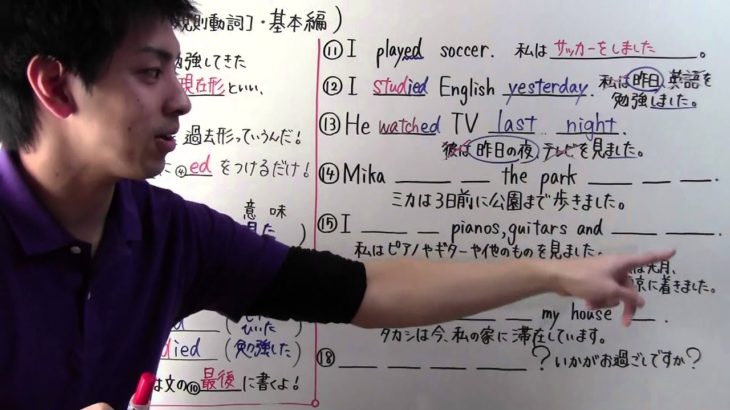 規則動詞]・基本編)
勉強してきた
現在形といい、
過去形っていうんだ!
に④edをつけるだけ!
意味
ied (勉強した)
は文の⑩最後に書くよ!
⑪ I played soccer. 私はサッカーをしました。
⑫ I studied English yesterday. 私は昨日英語を
勉強しました。
⑬ He watched TV last night.
彼は昨日の夜テレビを見ました。
⑭ Mika ____ ____ the park ____ ____ ____.
ミカは3日前に公園まで歩きました。
⑮ I ____ ____ pianos, guitars and ____ ____.
私はピアノやギターや他のものを見ました。
先月、
京に着きました。
my house ____.
タカシは今、私の家に滞在しています。
⑱ ____ ____ ____ ____? いかがお過ごしですか?